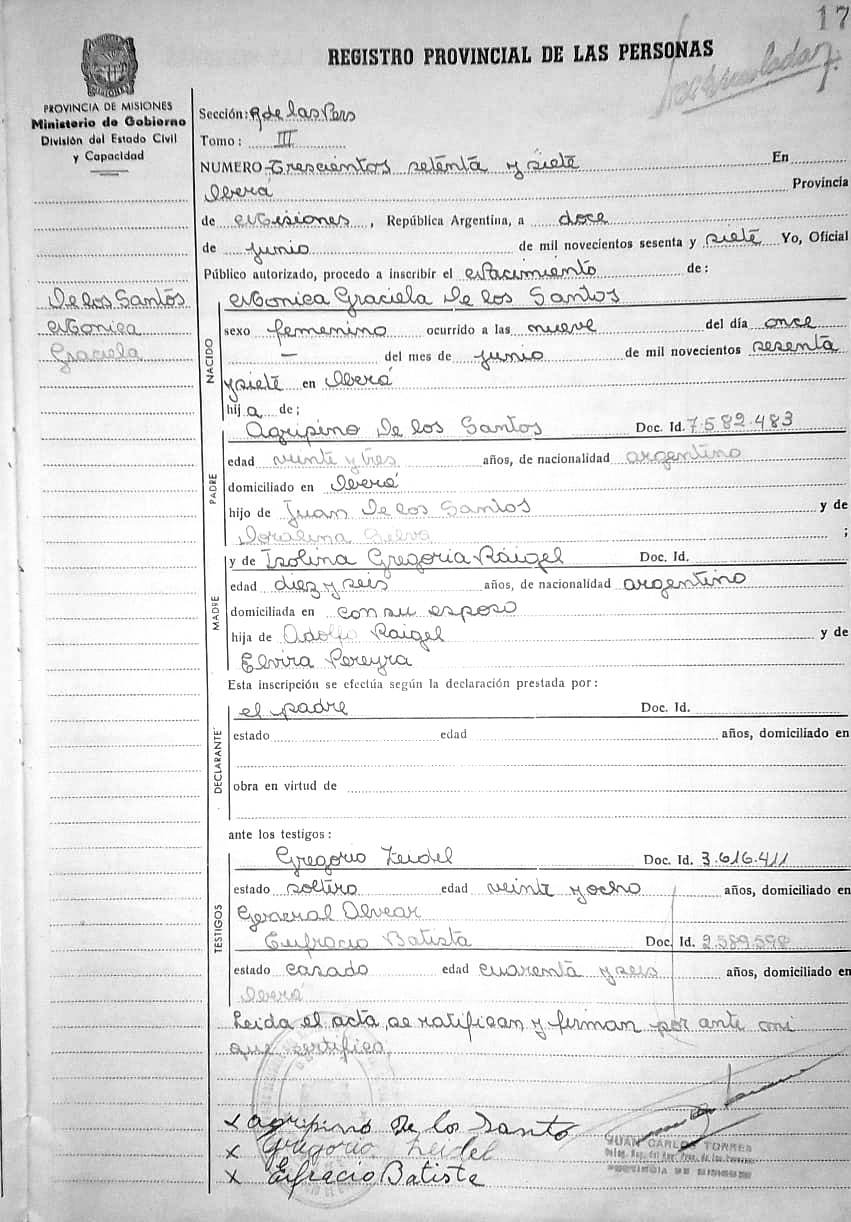 17
REGISTRO PROVINCIAL DE LAS PERSONAS
PROVINCIA DE MISIONES
Ministerio de Gobierno
División del Estado Civil
y Capacidad
Sección: R de las Pers
Tomo: III
NUMERO Trescientos setenta y siete En
Oberá Provincia
de Misiones, República Argentina, a doce
de junio de mil novecientos sesenta y siete Yo, Oficial
Público autorizado, procedo a inscribir el Nacimiento de:
De los Santos
Monica
Graciela
NACIDO
Monica Graciela De los Santos
sexo femenino ocurrido a las nueve del día once
— del mes de junio de mil novecientos sesenta
y siete en Oberá
hija de;
PADRE
Agripino De los Santos Doc. Id. 7.582.483
edad veinte y tres años, de nacionalidad argentino
domiciliado en Oberá
hijo de Juan De los Santos y de
Doralina Selva ;
MADRE
y de Isolina Gregoria Raigel Doc. Id.
edad diez y seis años, de nacionalidad argentino
domiciliada en con su esposo
hija de Adolfo Raigel y de
Elvira Pereyra
Esta inscripción se efectúa según la declaración prestada por:
DECLARANTE
el padre Doc. Id.
estado edad años, domiciliado en
obra en virtud de
ante los testigos:
TESTIGOS
Gregorio Zeidel Doc. Id. 3.616.411
estado soltero edad veinte y ocho años, domiciliado en
General Alvear
Eufracio Batista Doc. Id. 2.589.598
estado casado edad cuarenta y seis años, domiciliado en
Oberá
Leida el acta, se ratifican y firman por ante mi
que certifico
x agripino De lo Santo
x Gregorio Zeidel
x Eufracio Batiste
JUAN CARLOS TORRES
PROVINCIA DE MISIONES